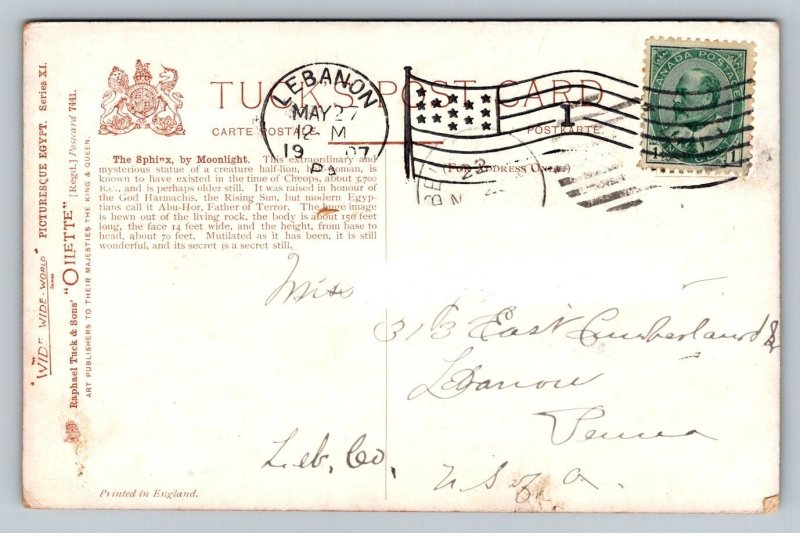 TUCK'S POST CARD
CARTE POSTALE. POSTKARTE.
(FOR ADDRESS ONLY.)
LEBANON
MAY 27
12 M
1907
PA
1
22
CANADA POSTAGE
1
The Sphinx, by Moonlight. This extraordinary and
mysterious statue of a creature half-lion, half-woman, is
known to have existed in the time of Cheops, about 3,700
B.C., and is perhaps older still. It was raised in honour of
the God Harmachis, the Rising Sun, but modern Egyp-
tians call it Abu-Hor, Father of Terror. The huge image
is hewn out of the living rock, the body is about 150 feet
long, the face 14 feet wide, and the height, from base to
head, about 70 feet. Mutilated as it has been, it is still
wonderful, and its secret is a secret still.
"WIDE-WIDE-WORLD" PICTURESQUE EGYPT. Series XI.
Raphael Tuck & Sons' "OILETTE" [Regd.] Postcard 7441.
ART PUBLISHERS TO THEIR MAJESTIES THE KING & QUEEN.
Miss
313 East Cumberland St
Lebanon
Penna
Leb. Co.
U S of A.
Printed in England.